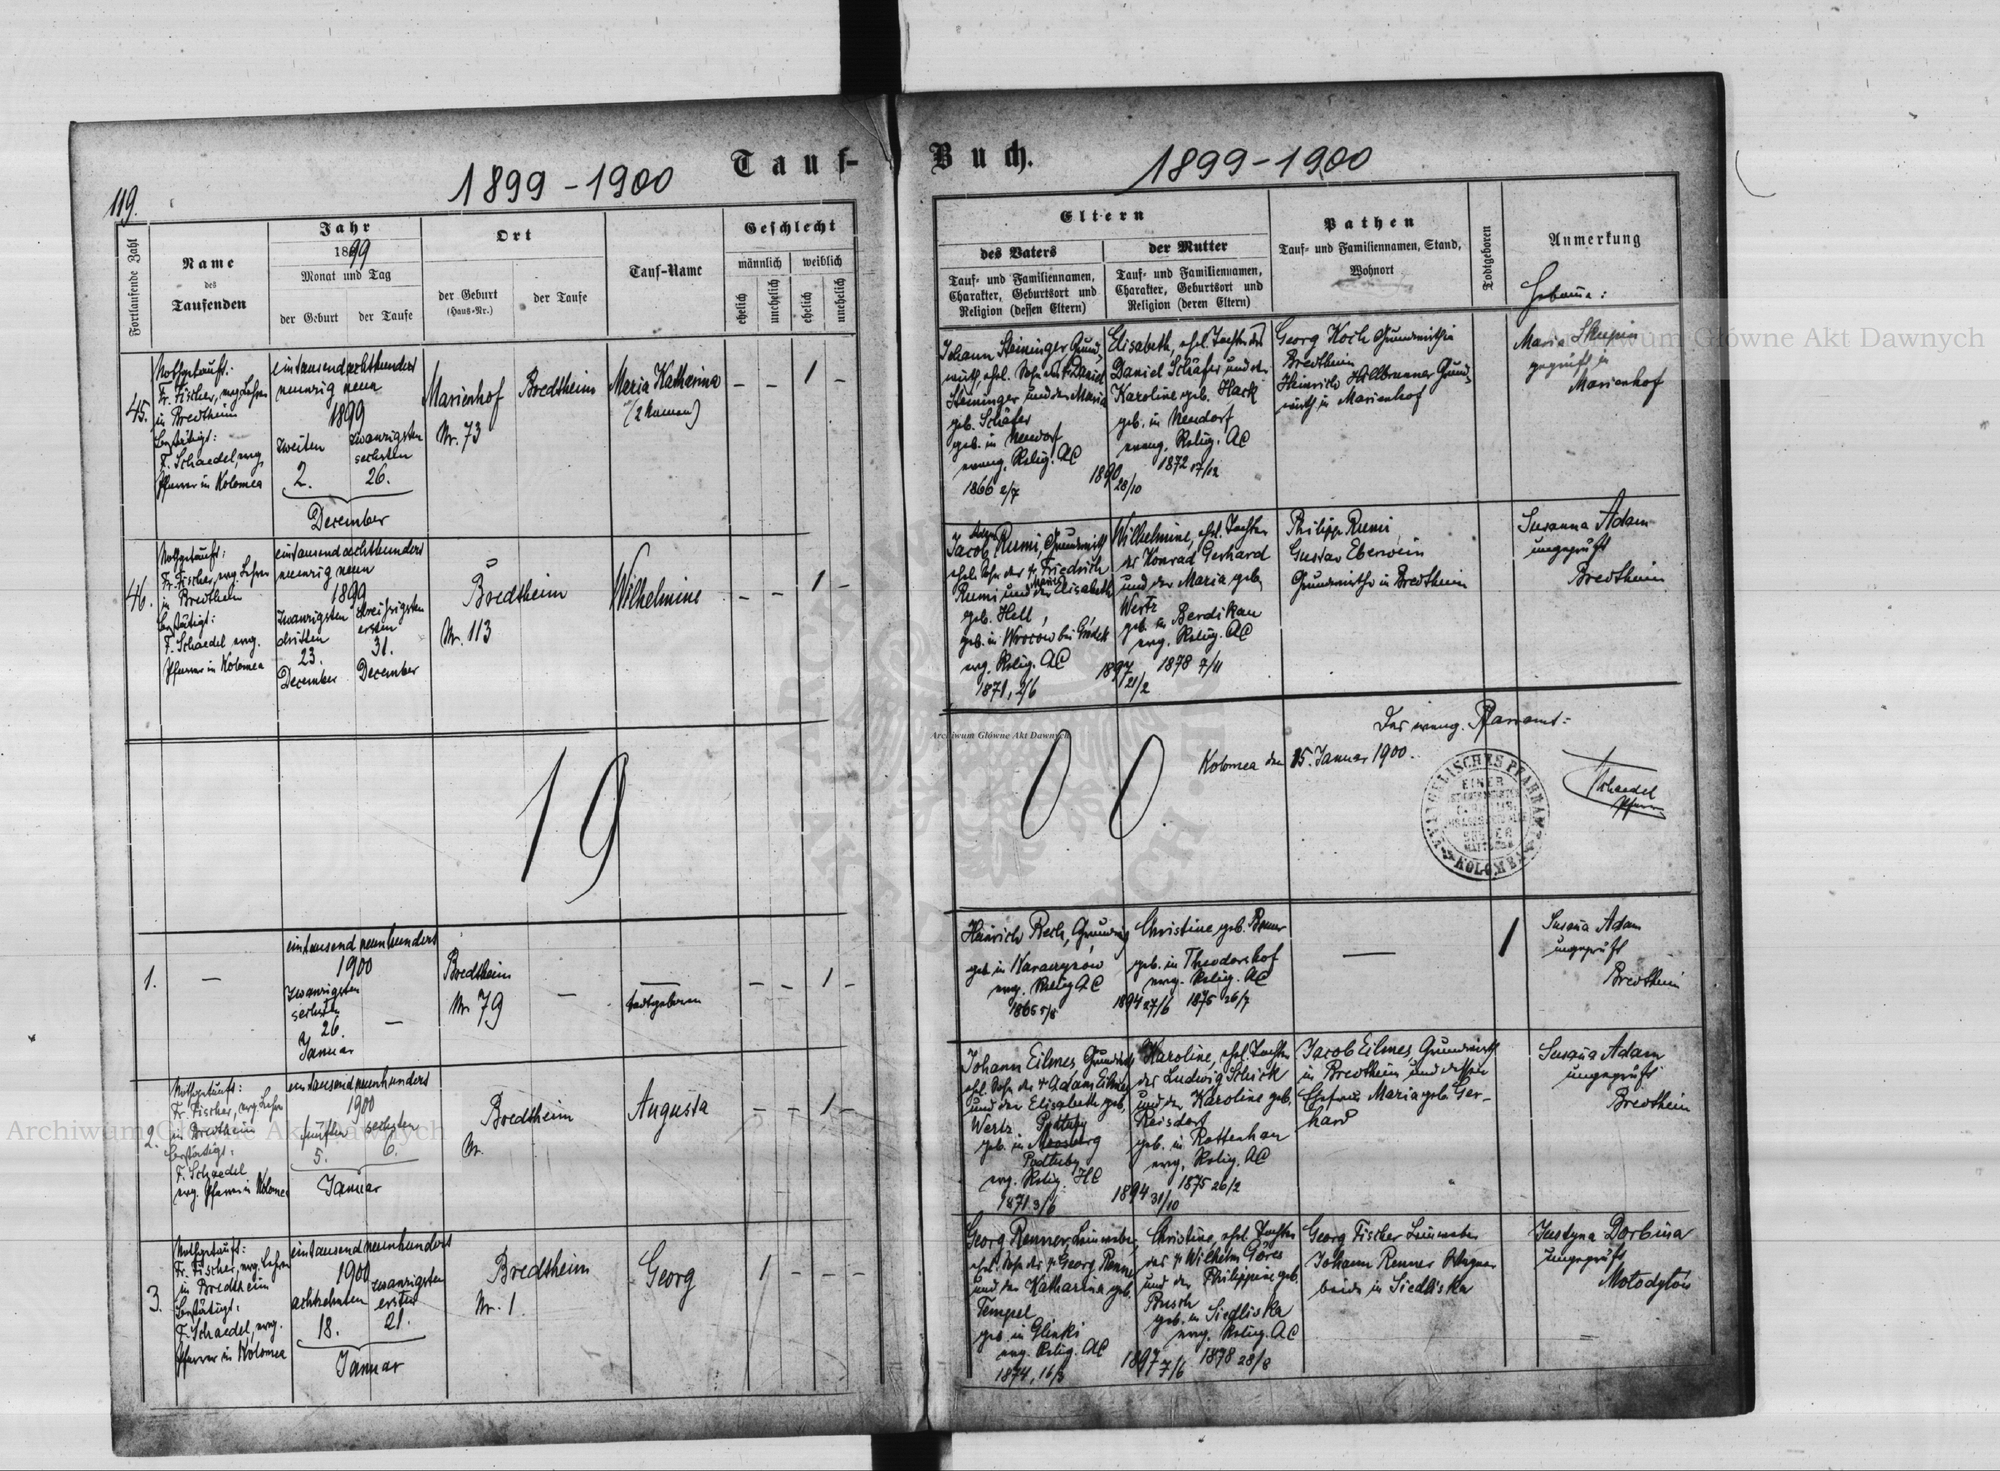 119.
1899-1900
Tauf-
Buch.
1899-1900
Fortlaufende Zahl
Name
des
Taufenden
Jahr
1899
Monat und Tag
der Geburt
der Taufe
Ort
der Geburt
(Haus-Nr.)
der Taufe
Tauf-Name
Geschlecht
männlich
weiblich
ehelich
unehelich
ehelich
unehelich
Eltern
des Vaters
Tauf- und Familiennamen,
Charakter, Geburtsort und
Religion (dessen Eltern)
der Mutter
Tauf- und Familiennamen,
Charakter, Geburtsort und
Religion (deren Eltern)
Pathen
Tauf- und Familiennamen, Stand,
Wohnort
Todtgeboren
Anmerkung
Hebamme:
45.
Nothgetauft:
Fr. Fischer, evg. Lehrer
in Bredtheim
bestätigt:
F. Schaedel, evg.
Pfarrer in Kolomea
eintausendachthundert
neunzig neun
1899
zweiten
2.
zwanzigsten
sechsten
26.
December
Marienhof
Nr. 73
Bredtheim
Maria Katherina
(2 Namen)
- - 1 -
Johann Steininger Grund-
wirth, ehel. Sohn des Daniel
Steininger und der Maria
geb. Schäfer
geb. in Neudorf
evang. Relig. AC
1866 2/7
Elisabeth, ehel. Tochter des
Daniel Schäfer und der
Karoline geb. Hack
geb. in Neudorf
evang. Relig. AC
1872 17/12
1890
28/10
Georg Koch Grundwirth in
Bredtheim
Heinrich Hillbrunner Grund-
wirth in Marienhof
Maria Skupin
geprüft in
Marienhof
46.
Nothgetauft:
Fr. Fischer, evg. Lehrer
in Bredtheim
bestätigt:
F. Schaedel evg.
Pfarrer in Kolomea
eintausendachthundert
neunzig neun
1899
zwanzigsten
dritten
23.
December
dreißigsten
ersten
31.
December
Bredtheim
Nr. 113
Wilhelmine
- - 1 -
Jacob Rumi, Grundwirth
ehel. Sohn des † Friedrich
Rumi und der Elisabeth
geb. Hell,
geb. in Wrocow bei Gródek
evg. Relig. AC
1871, 2/6
Wilhelmine, ehel. Tochter
des Konrad Gerhard
und der Maria geb.
Wertz
geb. in Berdikau
evg. Relig. AC
1878 7/11
1897
21/2
Philipp Rumi,
Gustav Eberwein
Grundwirthe in Bredtheim
Susanna Adam
ungeprüft
Bredtheim
Das evang. Pfarramt:
Kolomea den 15. Januar 1900.
Schaedel
Pfarrer
EVANGELISCHES PFARRAMT
KOLOMEA
1900
1.
-
eintausend neunhundert
1900
zwanzigsten
sechsten
26.
Januar
-
Bredtheim
Nr. 79
-
todtgeboren
- - 1 -
Heinrich Rech, Grundwirth
geb. in Karaczynów
evg. Relig AC
1865 5/8
Christine geb.
geb. in Theodorshof
evg. Relig. AC
1894 27/6 1875 26/7
-
1
Susana Adam
ungeprüft
Bredtheim
2.
Nothgetauft:
Fr. Fischer, evg. Lehrer
in Bredtheim
bestätigt:
F. Schaedel
evg. Pfarrer in Kolomea
eintausend neunhundert
1900
fünften
5.
sechsten
6.
Januar
Bredtheim
Nr.
Augusta
- - 1 -
Johann Eilmes, Grundwirth
ehel. Sohn des † Adam Eilmes
und der Elisabeth geb.
Wertz
geb. in
Podluby
evg. Relig. HC
1871 3/6
Karoline, ehel. Tochter
des Ludwig Schick
und der Karoline geb.
Reisdorf
geb. in Rottenhan
evg. Relig. AC
1875 26/2
1894 31/10
Jacob Eilmes, Grundwirth
in Bredtheim und dessen
Ehefrau Maria geb. Ger-
hard
Susana Adam
ungeprüft
Bredtheim
3.
Nothgetauft:
Fr. Fischer, evg. Lehrer
in Bredtheim
bestätigt:
F. Schaedel, evg.
Pfarrer in Kolomea
eintausend neunhundert
1900
achtzehnten
18.
zwanzigsten
ersten
21.
Januar
Bredtheim
Nr. 1.
Georg
1 - - -
Georg Renner Leinweber,
ehel. Sohn des † Georg Renner
und der Katharina geb.
Tempel
geb. in Glinki
evg. Relig. AC
1874, 16/3
Christine, ehel. Tochter
des † Wilhelm Göres
und der Philippine geb.
Busch
geb. in Siedliska
evg. Relig. AC
1878 28/8
1897 7/6
Georg Fischer Leinweber
Johann Renner
beide in Siedliska
Justyna Dorbina
ungeprüft
Mołodyłow
Archiwum Główne Akt Dawnych
Archiwum Główne Akt Dawnych
Archiwum Główne Akt Dawnych